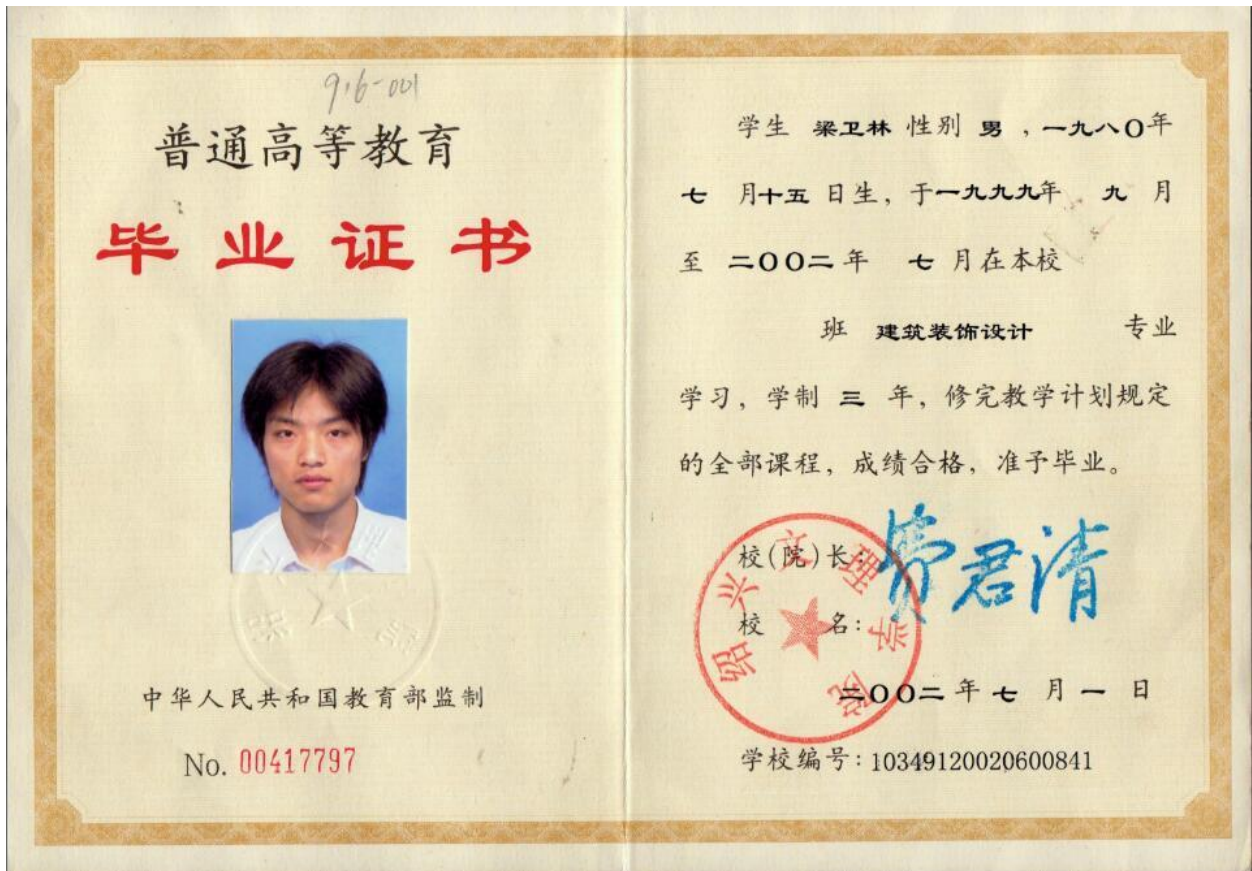 916-001
普通高等教育
毕业证书
中华人民共和国教育部监制
No. 00417797
学生 梁卫林 性别 男 ，一九八〇年
七 月十五 日生，于一九九九年 九 月
至 二〇〇二 年 七 月在本校
班 建筑装饰设计 专业
学习，学制 三 年，修完教学计划规定
的全部课程，成绩合格，准予毕业。
校(院)长：费君清
校 名：
绍兴文理学院
二〇〇二 年 七 月 一 日
学校编号：10349120020600841